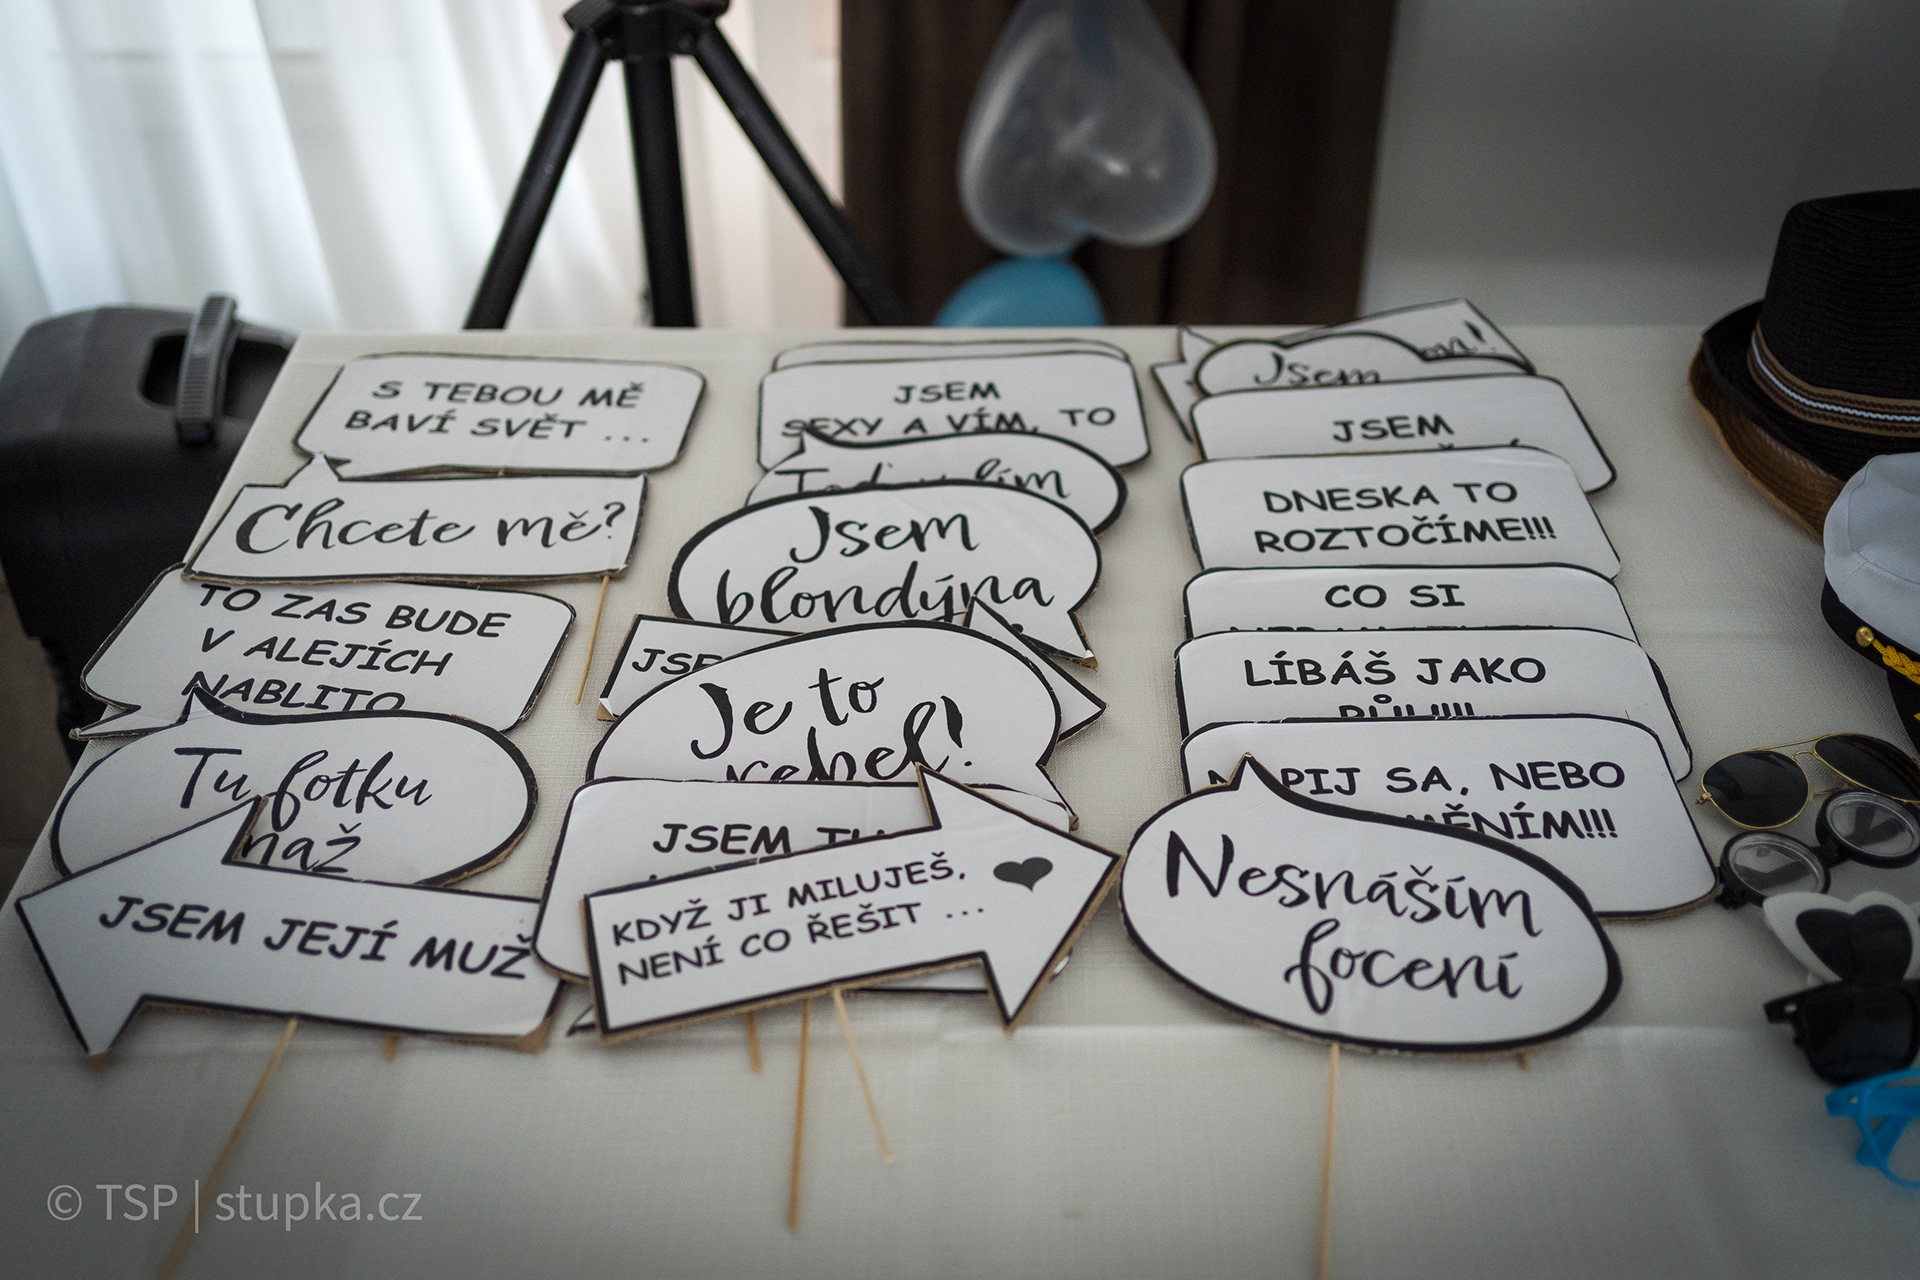 S TEBOU MĚ
BAVÍ SVĚT ...
Chcete mě?
TO ZAS BUDE
V ALEJÍCH
NABLITO
Tu fotku
maž
JSEM JEJÍ MUŽ
JSEM
SEXY A VÍM, TO
Jsem
blondýna
Je to
rebel!
JSEM
KDYŽ JI MILUJEŠ,
NENÍ CO ŘEŠIT ...
Jsem
JSEM
DNESKA TO
ROZTOČÍME!!!
CO SI
LÍBÁŠ JAKO
SA, NEBO
Nesnáším
focení
© TSP | stupka.cz